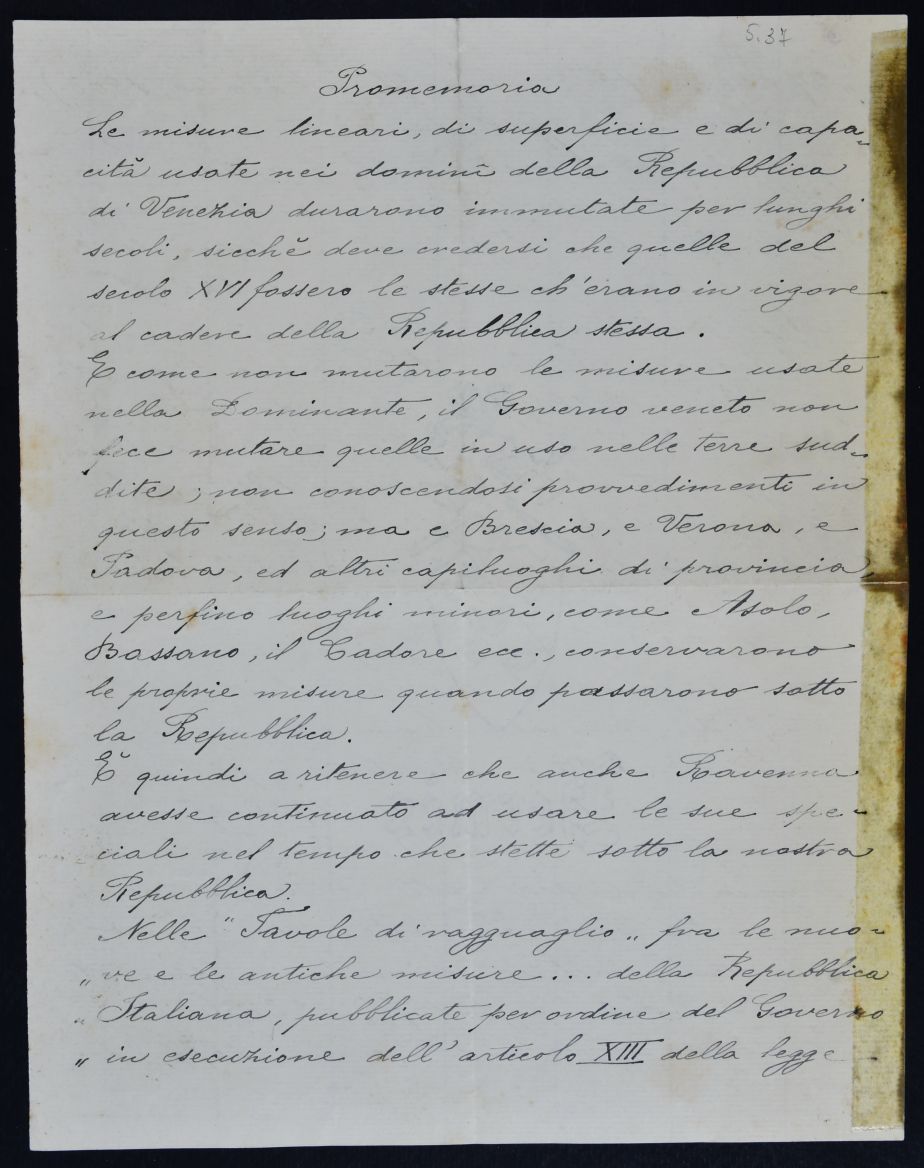 5.37
Promemoria
Le misure lineari, di superficie e di capa-
cità usate nei dominî della Repubblica
di Venezia durarono immutate per lunghi
secoli, sicchè deve credersi che quelle del
secolo XVI fossero le stesse ch'erano in vigore
al cadere della Repubblica stessa.
E come non mutarono le misure usate
nella Dominante, il Governo veneto non
fece mutare quelle in uso nelle terre sud-
dite; non conoscendosi provvedimenti in
questo senso; ma e Brescia, e Verona, e
Padova, ed altri capiluoghi di provincia,
e perfino luoghi minori, come Asolo,
Bassano, il Cadore ecc., conservarono
le proprie misure quando passarono sotto
la Repubblica.
È quindi a ritenere che anche Ravenna
avesse continuato ad usare le sue spe-
ciali nel tempo che stette sotto la nostra
Repubblica.
Nelle "Tavole di ragguaglio „ fra le nuo-
„ ve e le antiche misure... della Repubblica
„ Italiana, pubblicate per ordine del Governo
„ in esecuzione dell'articolo XIII della legge